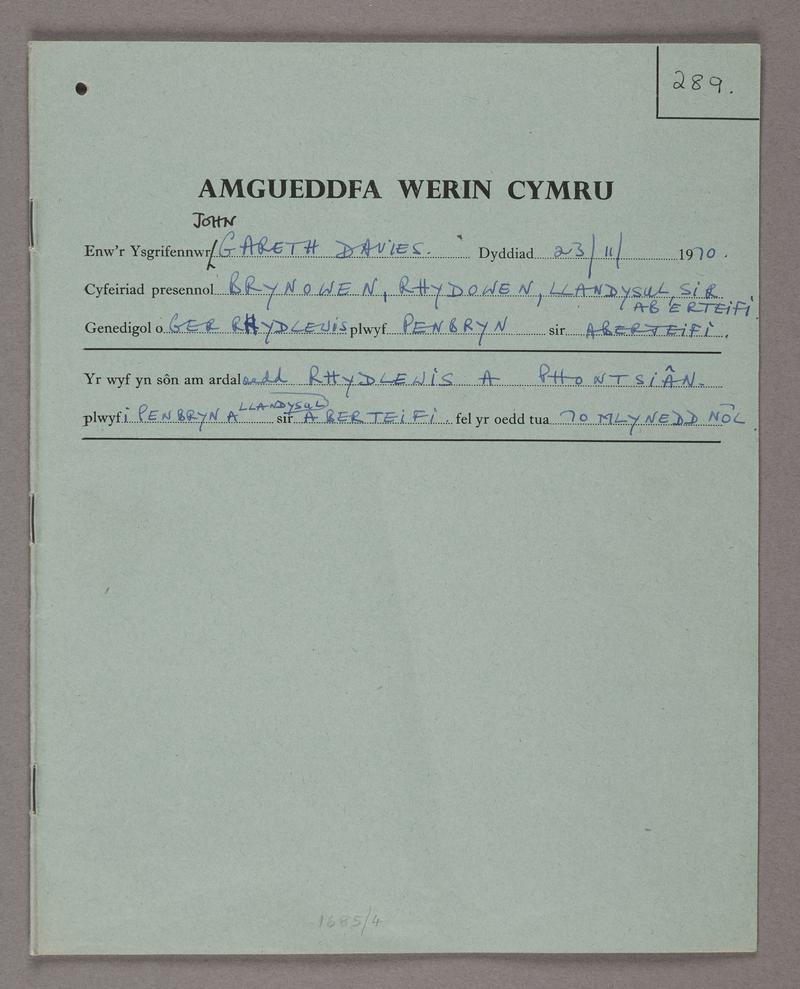 289.
AMGUEDDFA WERIN CYMRU
JOHN
Enw'r Ysgrifennwr GARETH DAVIES. Dyddiad 23/11/ 1970.
Cyfeiriad presennol BRYNOWEN, RHYDOWEN, LLANDYSUL SIR
ABERTEIFI.
Genedigol o GER RHYDLEWIS plwyf PENBRYN sir ABERTEIFI.
Yr wyf yn sôn am ardaloedd RHYDLEWIS A PHONTSIÂN.
LLANDYSUL
plwyfi PENBRYN A sir ABERTEIFI. fel yr oedd tua 70 MLYNEDD NÔL.
1685/4